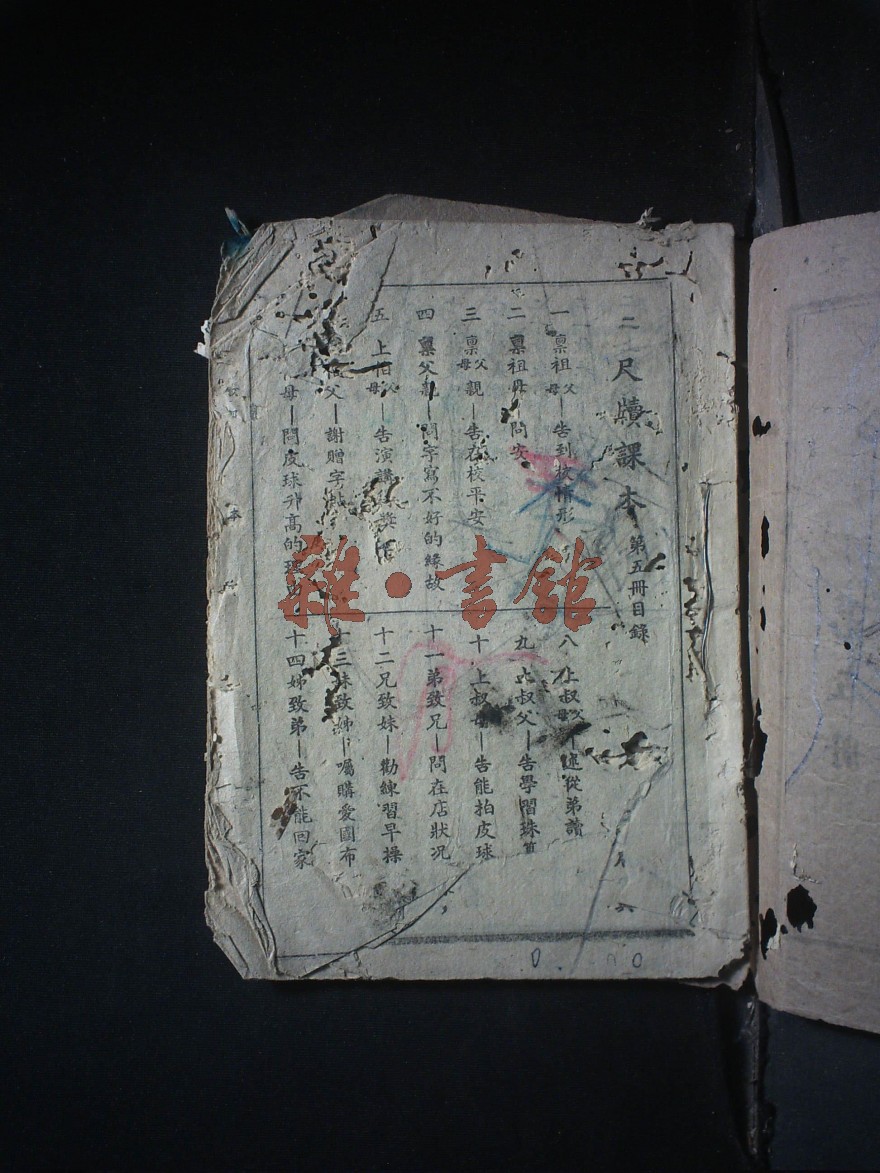 二 尺牘課本 第五冊目錄
一 稟祖父母—告到校情形
二 稟祖母—問安
三 稟父母親—告在校平安
四 稟父親—問字寫不好的緣故
五 上伯父母—告演講
父—謝贈字
母—問皮球升高的
八 上叔父母—述從弟讀
九 上叔父—告學習珠算
十 上叔母—告能拍皮球
十一 弟致兄—問在店狀況
十二 兄致妹—勸練習早操
十三 妹致姊—囑購愛國布
十四 姊致弟—告不能回家
雜·書館